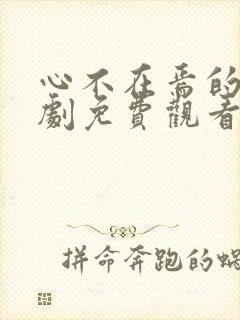 心不在焉的
劇免費觀看
拼命奔跑的蝸